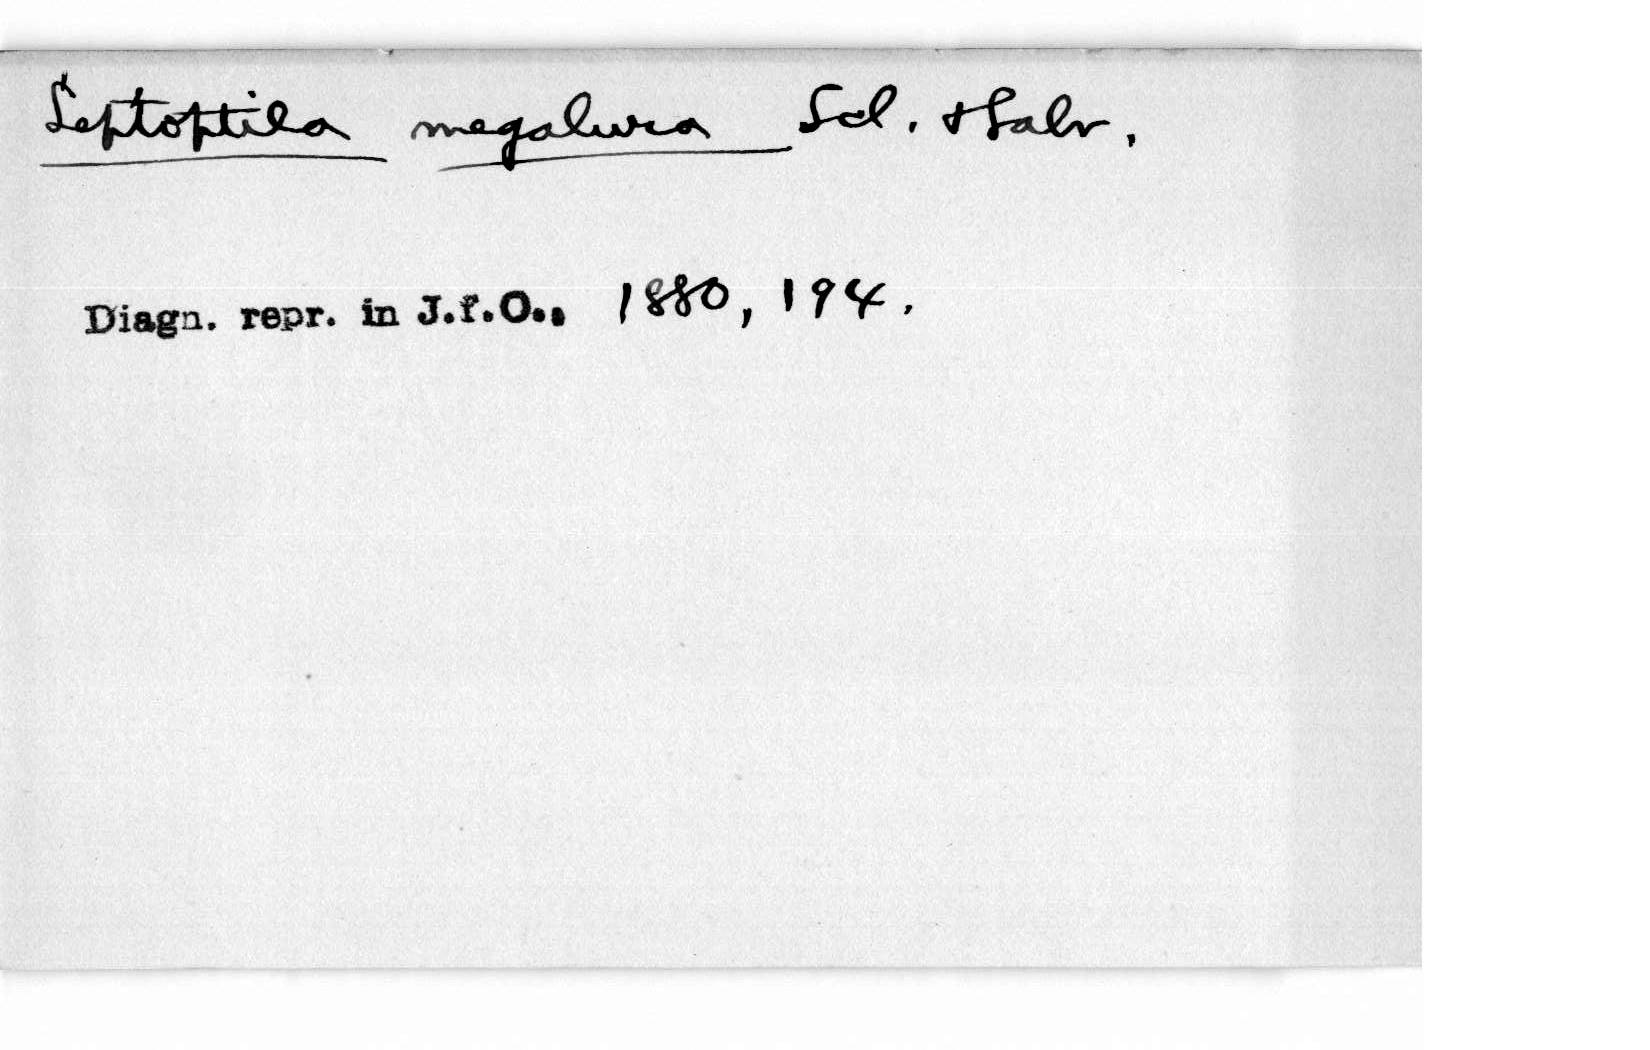 Leptoptila megalura Scl. + Salv.
Diagn. repr. in J.f.O., 1880, 194.